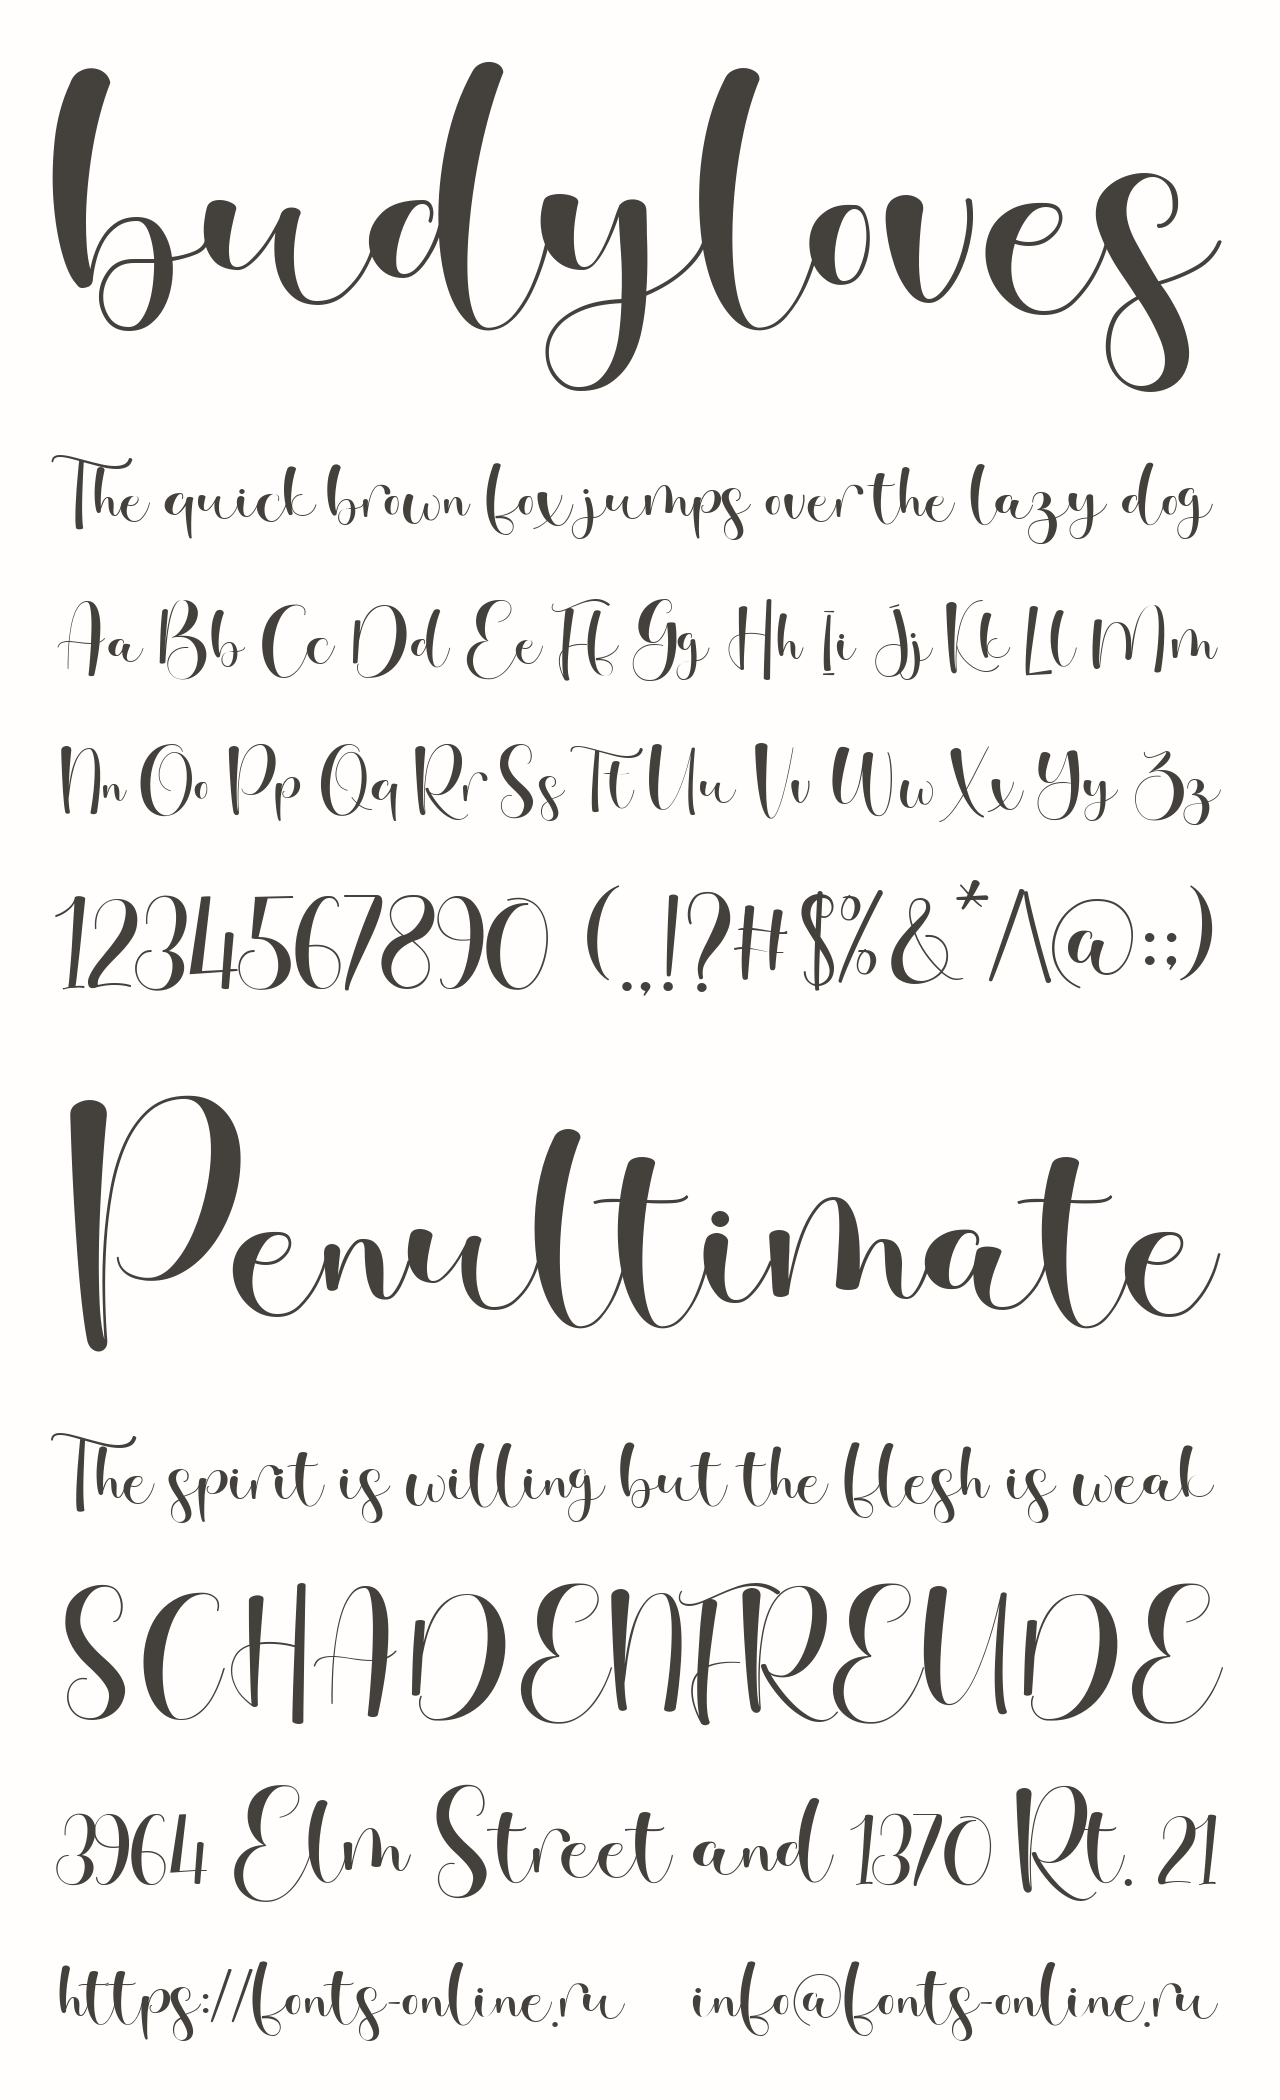 budyloves
The quick brown fox jumps over the lazy dog
Aa Bb Cc Dd Ee Ff Gg Hh Ii Jj Kk Ll Mm
Nn Oo Pp Qq Rr Ss Tt Uu Vv Ww Xx Yy Zz
1234567890 (.,!?#$%&*/\@:;)
Penultimate
The spirit is willing but the flesh is weak
SCHADENFREUDE
3964 Elm Street and 1370 Rt. 21
https://fonts-online.ru info@fonts-online.ru